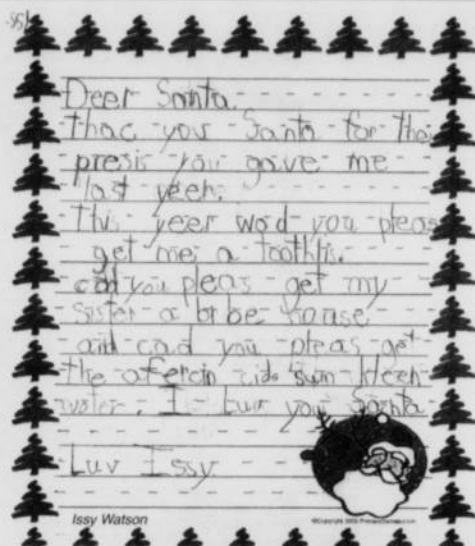 Deer Santa
thac you Santa for the
presis you gave me
last yeer.
this yeer wod you pleas
get me a
cod you pleas get my
sister a brbe house
and cod you pleas get
the afercin cids sum kleen
woter. I Luv you Santa
Luv Issy
Issy Watson